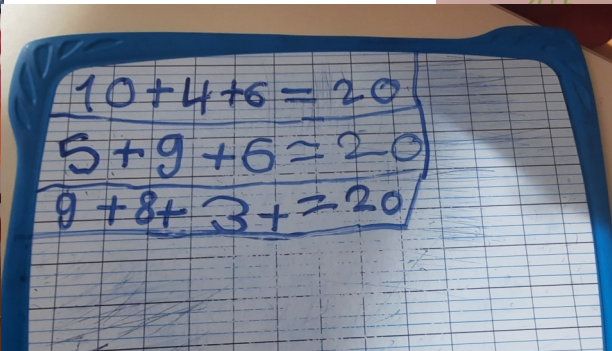 10+4+6=20
5+9+6=20
9+8+3+=20